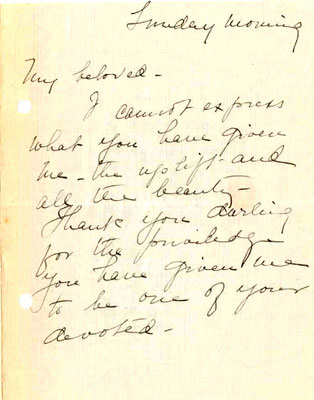 Sunday Morning
My beloved -
I cannot express
what you have given
me - the uplift - and
all the beauty -
Thank you darling
for the priviledge
you have given me
to be one of your
devoted -